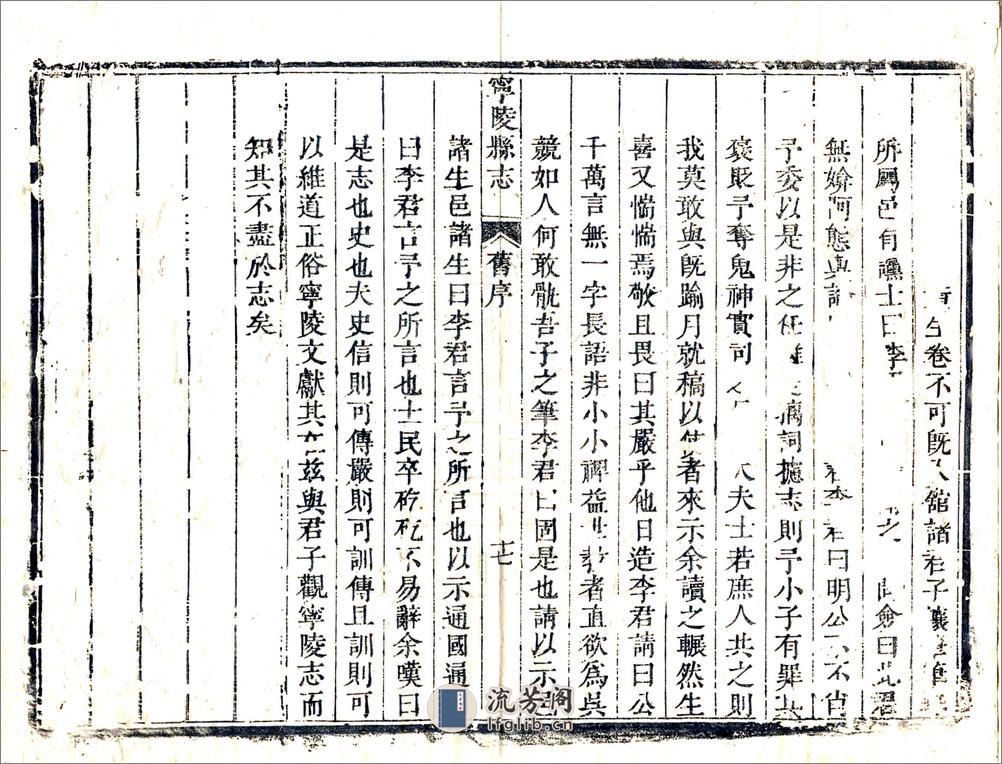 生卷不可旣入舘諸君子襄
所屬邑有
士曰李
僉曰此君
無媕阿態與
君李君曰明公不不肖
予委以是非之任
詞摭志則予小子有罪
褒貶予奪鬼神實司
大夫士若庶人共之則
我莫敢與旣踰月就稿以使者來示余讀之輾然生
喜又惴惴焉敬且畏曰其嚴乎他日造李君請曰公
千萬言無一字長語非小小裨益
者直欲爲吳
競如人何敢骫吾子之筆李君曰固是也請以示邑
寧陵縣志
舊序
十七
諸生邑諸生曰李君言予之所言也以示通國通
曰李君言予之所言也士民卒矻矻不易辭余嘆曰
是志也史也夫史信則可傳嚴則可訓傳且訓則可
以維道正俗寧陵文獻其在茲與君子觀寧陵志而
知其不盡於志矣
流芳閣
lfglib.cn